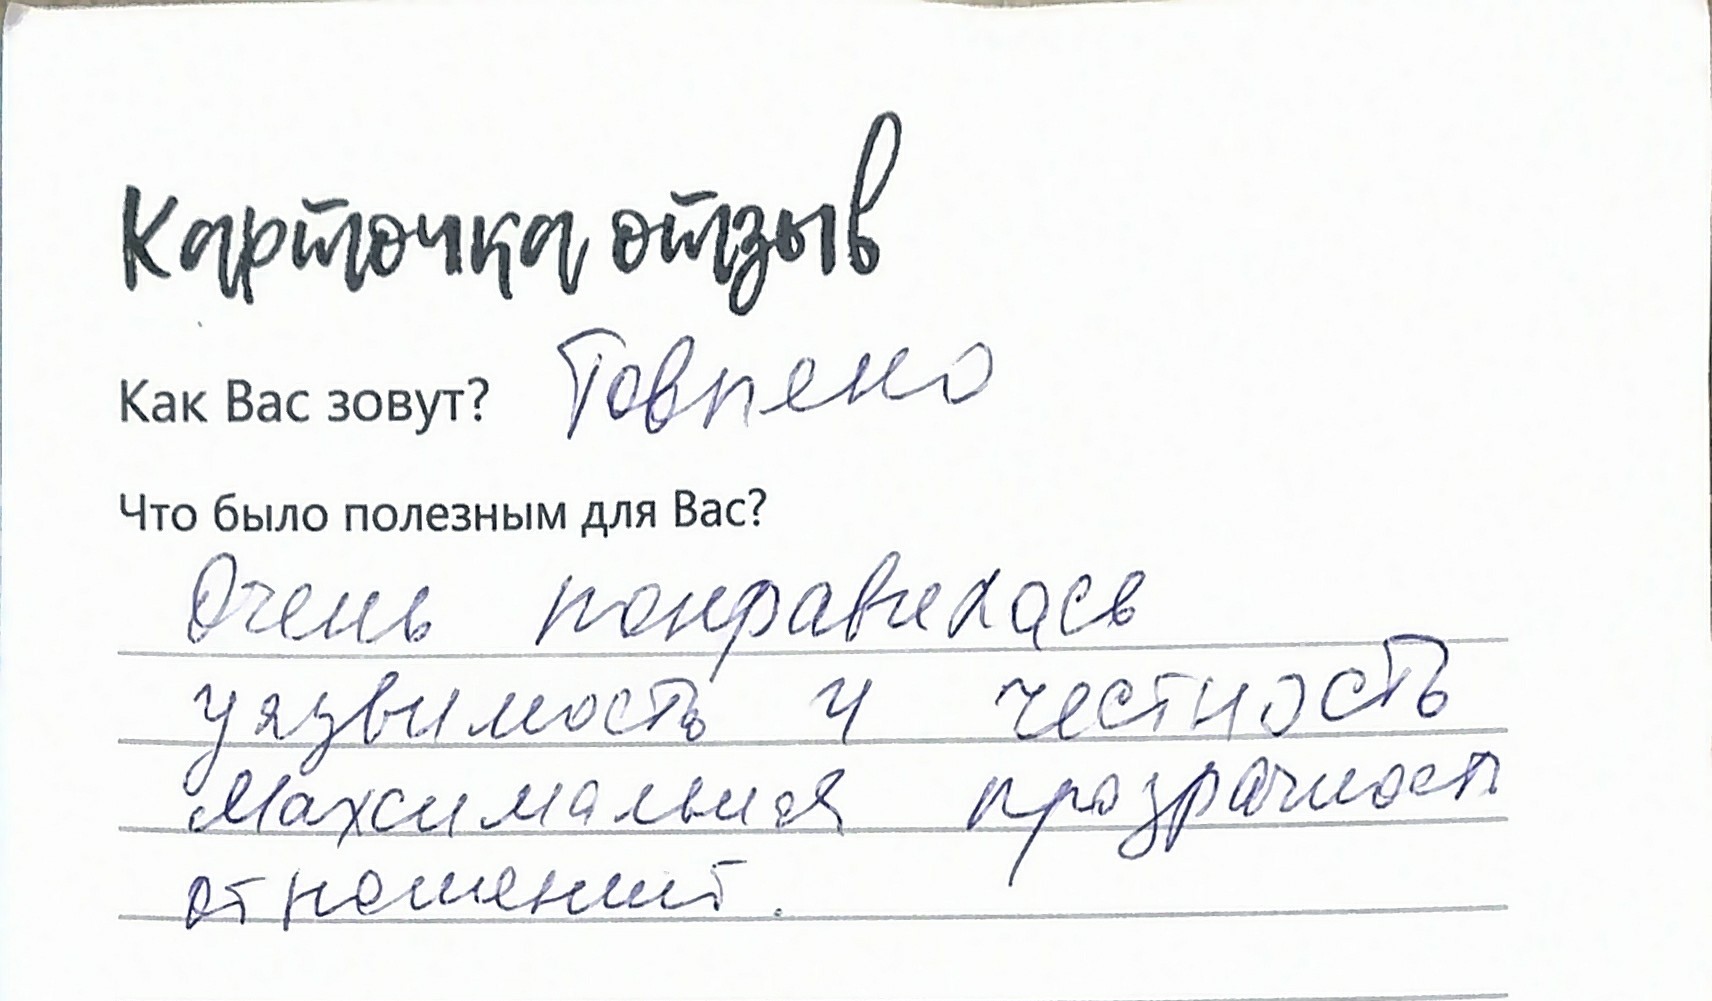 Карточка отзыв
Как Вас зовут?
Что было полезным для Вас?
Очень понравилась
уязвимость и честность
Максимальная прозрачность
отношений.